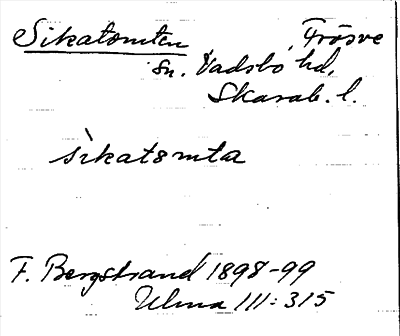 Sikatomten Frösve
sn. Vadsbo hd,
Skarab. l.
sìkatomta
F. Bergstrand 1898-99
Ulma 111:315